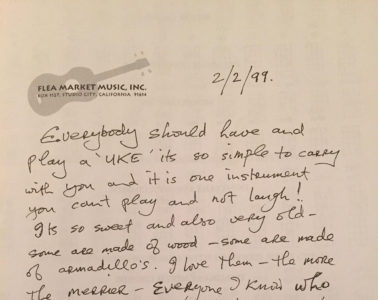 FLEA MARKET MUSIC, INC.
BOX 1127, STUDIO CITY, CALIFORNIA 91614
2/2/99.
Everybody should have and
play a 'UKE' its so simple to carry
with you and it is one instrument
you cant play and not laugh!
Its so sweet and also very old-
some are made of wood - some are made
of armadillo's. I love them - the more
the merrier - Everyone I know who